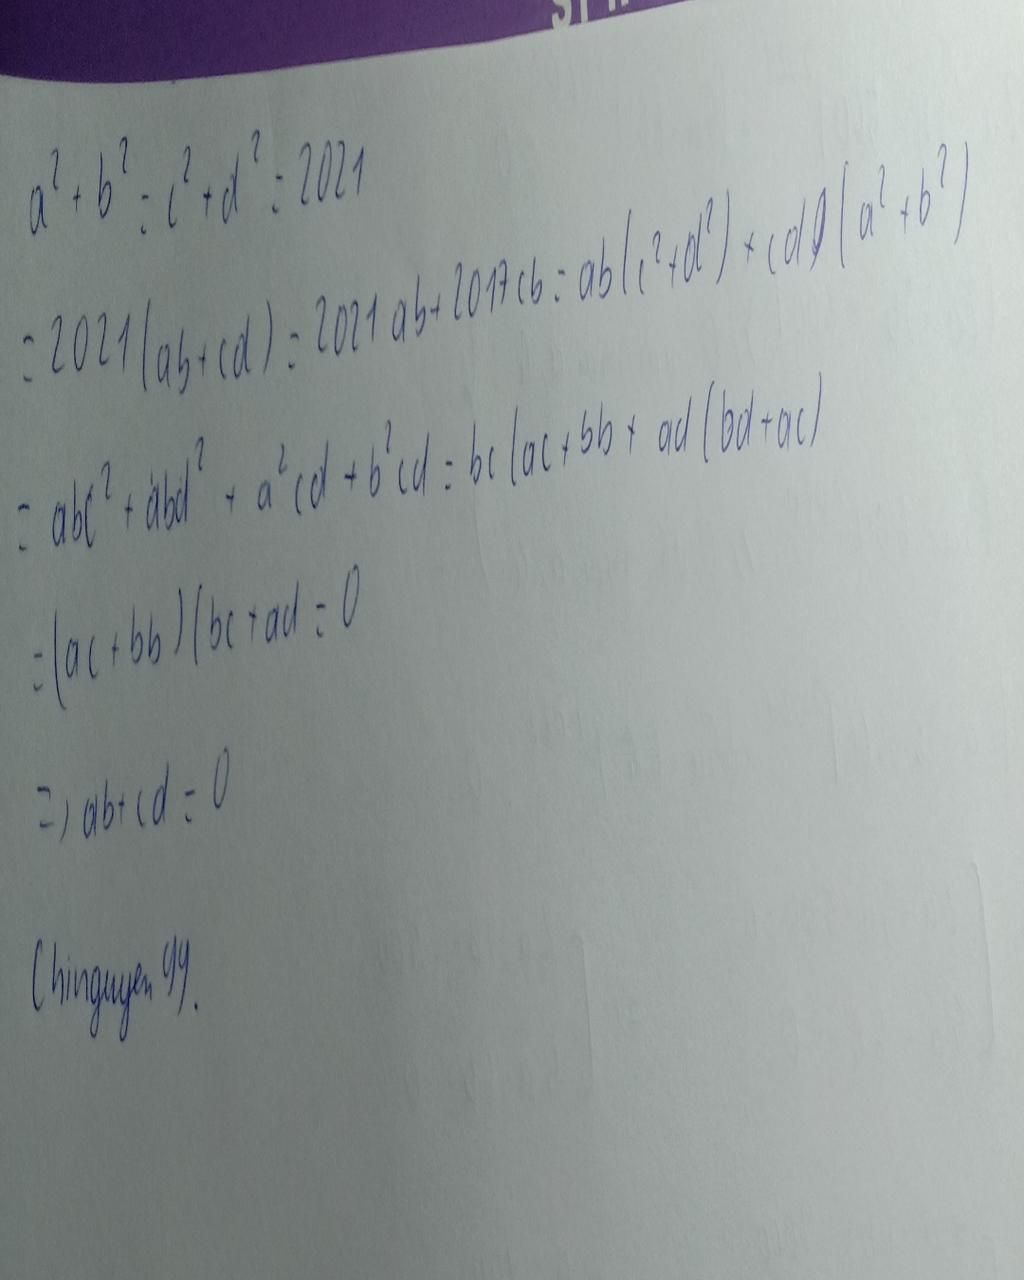 a² + b² = c² + d² = 2021
= 2021(ab+cd) = 2021 ab+ 2017cb = ab(c²+d²) + cd(a² + b²)
= abc² + abd² + a²cd + b²cd = bc(ac + bb + ad(bd+ac)
=(ac+bb)(bc+ad = 0
=> ab+cd = 0
Chinguyen 99.